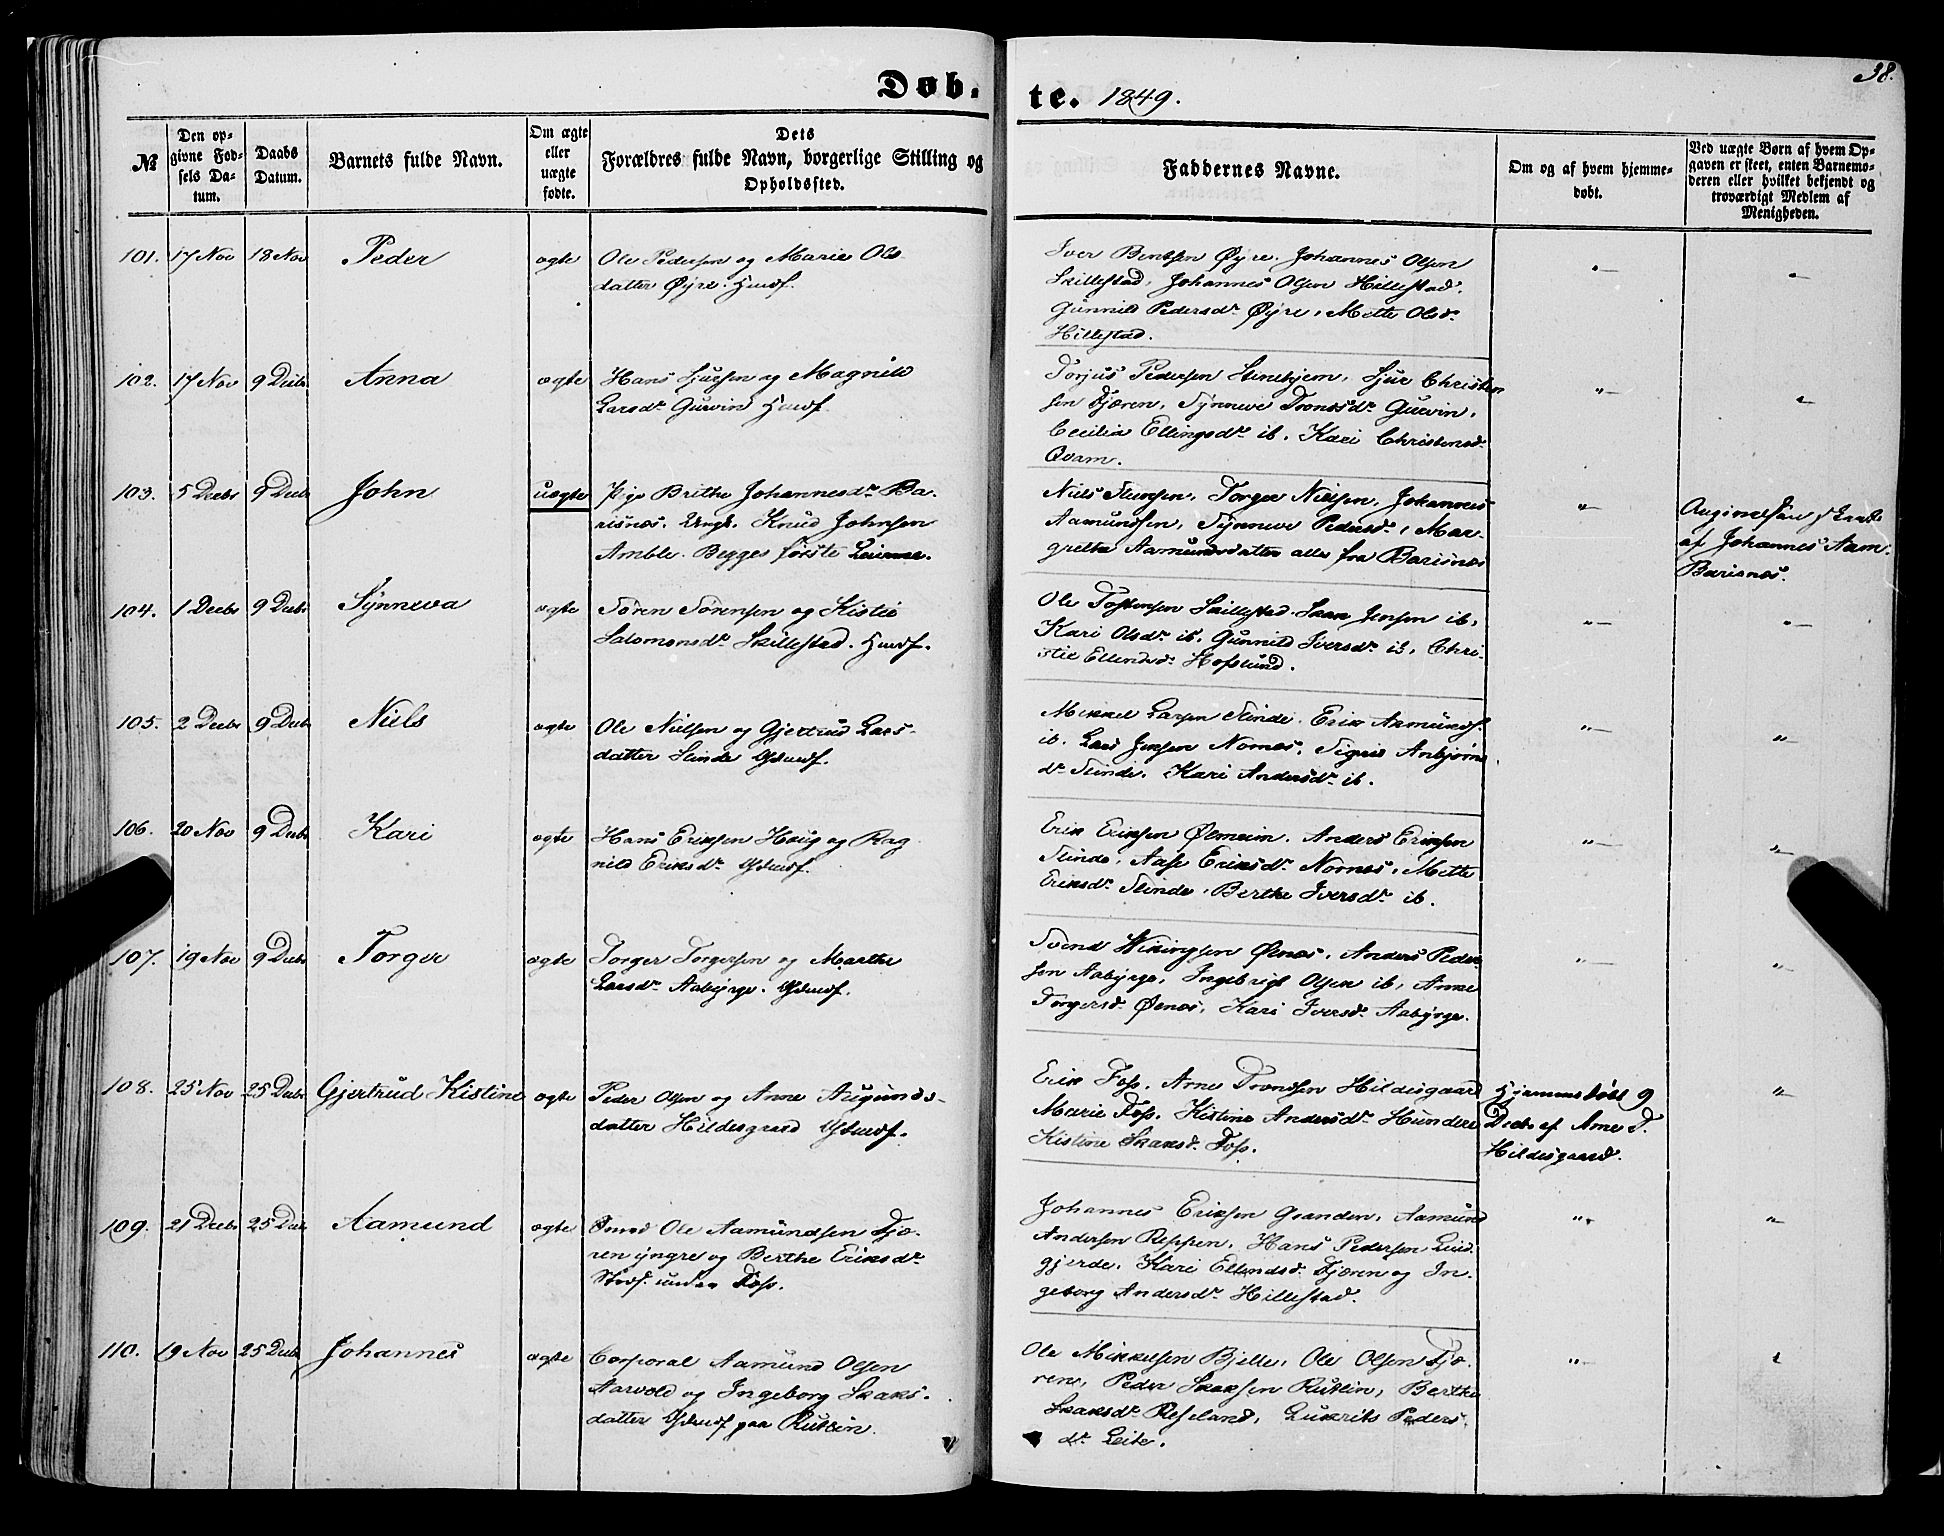 38.
Døb- te. 1849.
№
Den op-
givne Fød-
sels Da-
tum.
Daabs
Datum.
Barnets fulde Navn.
Om ægte
eller
uægte
fødte.
Dets
Forældres fulde Navn, borgerlige Stilling og
Opholdssted.
Faddernes Navne.
Om og af hvem hjemme-
døbt.
Ved uægte Børn af hvem Op-
gaven er skeet, enten Barnemo-
deren eller hvilket bekjendt og
troværdigt Medlem af
Menigheden.
101. 17 Nov 18 Nov Peder ægte
Ole Pedersen og Marie Ols
datter Øyre. Huusf.
Iver Bentsen Øyre. Johannes Olsen
Skillestad, Johannes Olsen Hillestad.
Gunnild Pedersdr Øyre, Mette Olsdr
Hillestad.
102. 17 Nov 9 Decbr Anna ægte
Hans Sjursen og Magnild
Larsdr Gurvin Huusf.
Torjus Pedersen Stenehjem, Sjur Christen
sen Fjæren, Synneve Trondsdr Gurvin,
Cecilia Ellingsdr ib. Kari Christensd.
Qvam.
103. 5 Decbr 9 Decbr John uægte
Pige Brithe Johannesdr Ba-
risnæs. Ungk. Knud Johnsen
Amble. Begges første Leierm.
Niels Torger Nielsen, Johannes
Aamundsen, Synneve Pedersdr, Mar-
grethe Aamundsdatter alle fra Barisnæs
af Johannes Aam.
Barisnæs.
104. 1 Decbr 9 Decbr Synneva ægte
Søren Sørensen og Kistie
Salomonsdr Skillestad. Huusf.
Ole Tostensen Skillestad. Skak Jensen ib,
Kari Olsdr ib. Gunnild Iversdr ib, Chri-
stie Ellendsdr Hofslund.
105. 2 Decbr 9 Decbr Niels ægte
Ole Nielsen og Gjertrud Lars-
datter Slinde Gbmdf.
Mikkel Larsen Slinde. Erik Aamundsn
ib. Lars Jensen Nornes. Sigrid Anbjørns
dr Slinde. Kari Andersdr ib.
106. 20 Nov 9 Decbr Kari ægte
Hans Eriksen Houg og Rag
nild Eriksdr Gbmdf.
Erik Eriksen Ølmeim. Anders Eriksen
Slinde, Aase Eriksdr Nornes, Mette
Eriksdr Slinde, Berthe Iversdr ib.
107. 19 Nov 9 Decbr Torger ægte
Torger Torgersen og Marthe
Larsdr Aabyrge. Gbmdf.
Svend Wikingsen Ønæs. Anders Peder
sen Aabyrge, Ingebrigt Olsen ib, Anne
Torgersd. Ønæs, Kari Iversd. Aabyrge.
108. 25 Nov 25 Decbr Gjertrud Kistine ægte
Peder Olsen og Anne Augunds-
datter Hildesgaard Gbmdf.
Erik Foss. Arne Trondsen Hildesgaard
Marie Foss. Kistine Andersdr Hundere
Kistine Skaksd. Foss.
Hjemmedøbt 9
Decb. af Arne T.
Hildesgaard.
109. 21 Decbr 25 Decbr Aamund ægte
Smed Ole Aamundsen Fjæ-
ren yngre og Berthe Eriksdr
under Foss.
Johannes Eriksen Granden. Aamund
Andersen Reppen. Hans Pedersen Leid-
gjerde. Kari Ellendsd. Fjæren og In-
geborg Andersdr Hillestad.
110. 19 Nov 25 Decbr Johannes ægte
Corporal Aamund Olsen
Aarvold og Ingeborg Skaks-
datter Gbmdf paa Rutlin.
Ole Mikkelsen Bjelle, Ole Olsen Fjæ-
ren, Peder Skaksen Rutlin, Berthe
Skaksdr Reseland, Lukrits Peders
dr Leite.